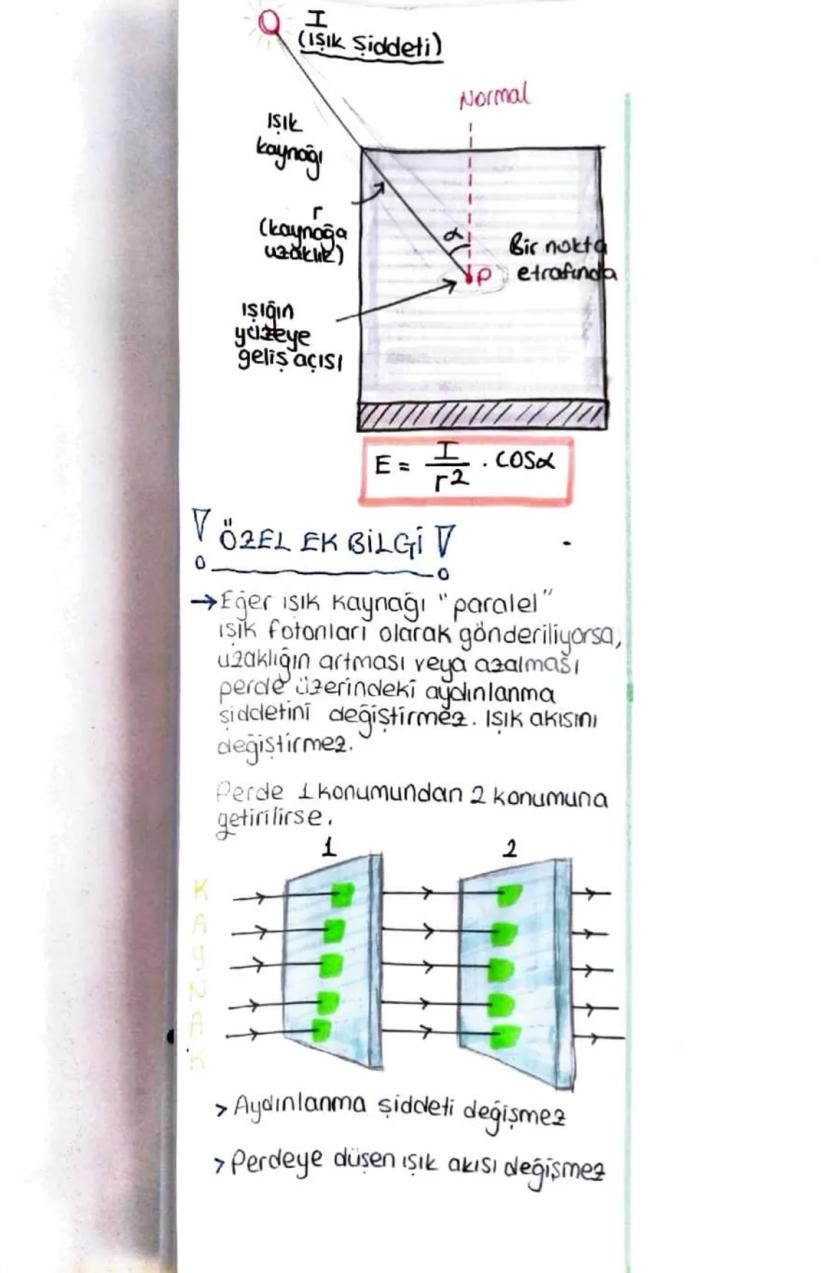 I
(Işık Şiddeti)
Normal
Işık
kaynağı
r
(kaynağa
uzaklık)
α
Bir nokta
etrafında
P
ışığın
yüzeye
geliş açısı
E = I/r² . cosα
! ÖZEL EK BİLGİ !
→ Eğer ışık kaynağı "paralel"
ışık fotonları olarak gönderiliyorsa,
uzaklığın artması veya azalması
perde üzerindeki aydınlanma
şiddetini değiştirmez. Işık akısını
değiştirmez.
Perde 1 konumundan 2 konumuna
getirilirse.
1 2
KAYNAK
> Aydınlanma şiddeti değişmez
> Perdeye düşen ışık akısı değişmez